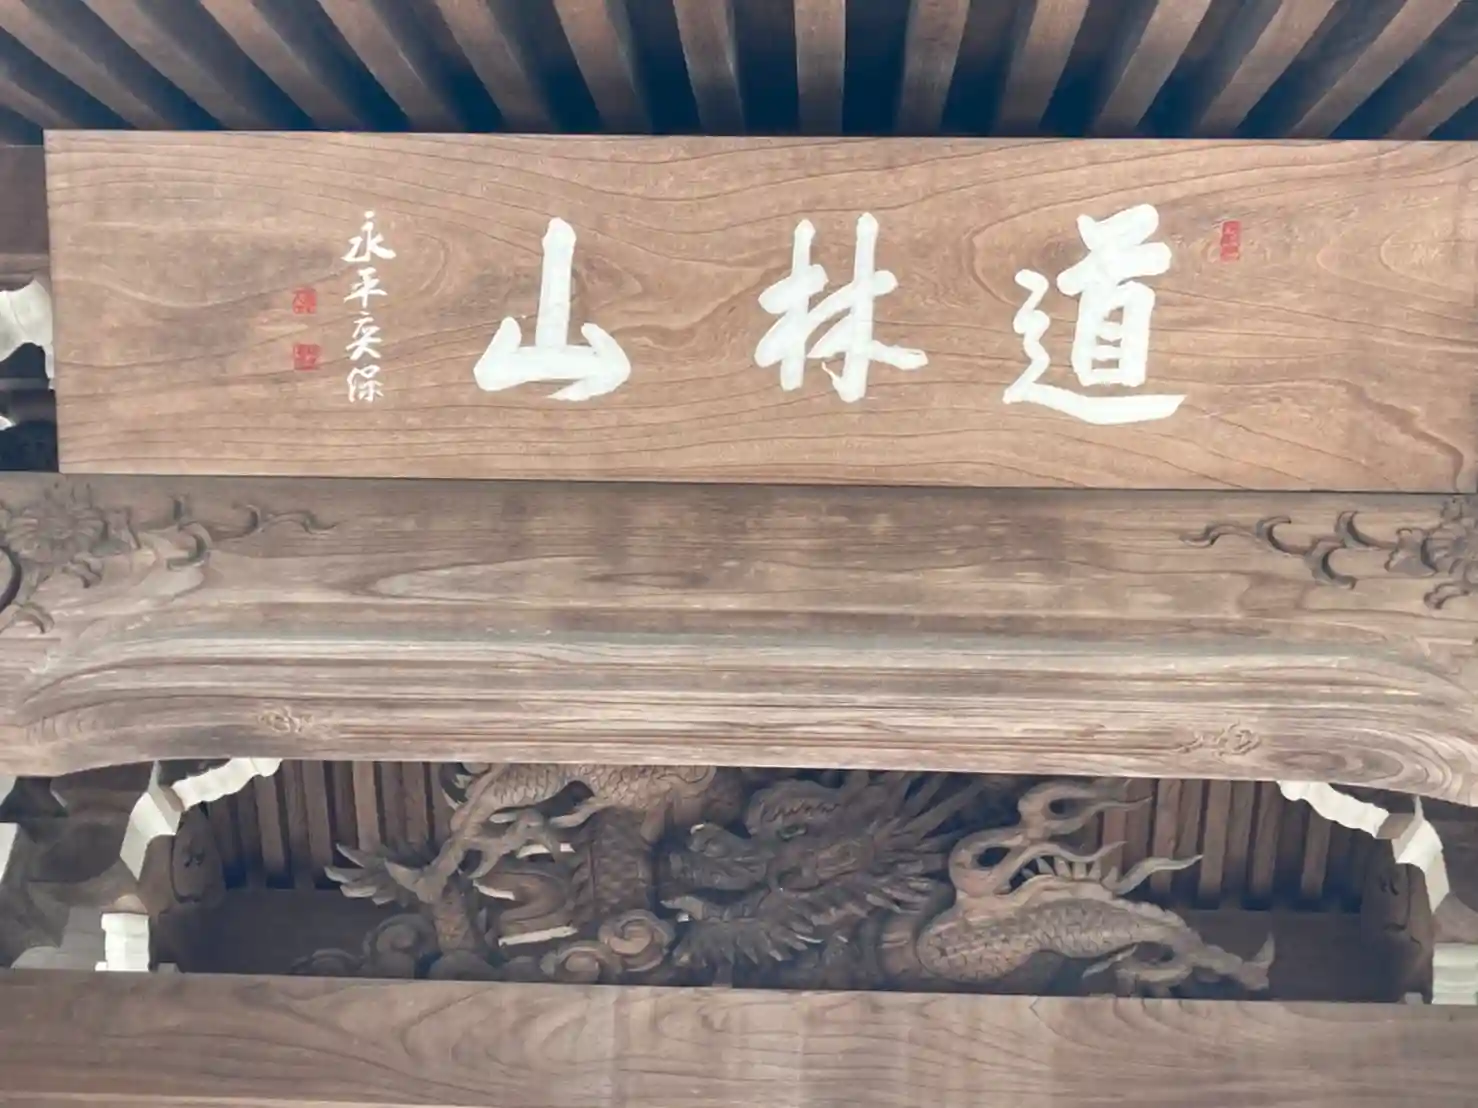 道林山
永平奕保